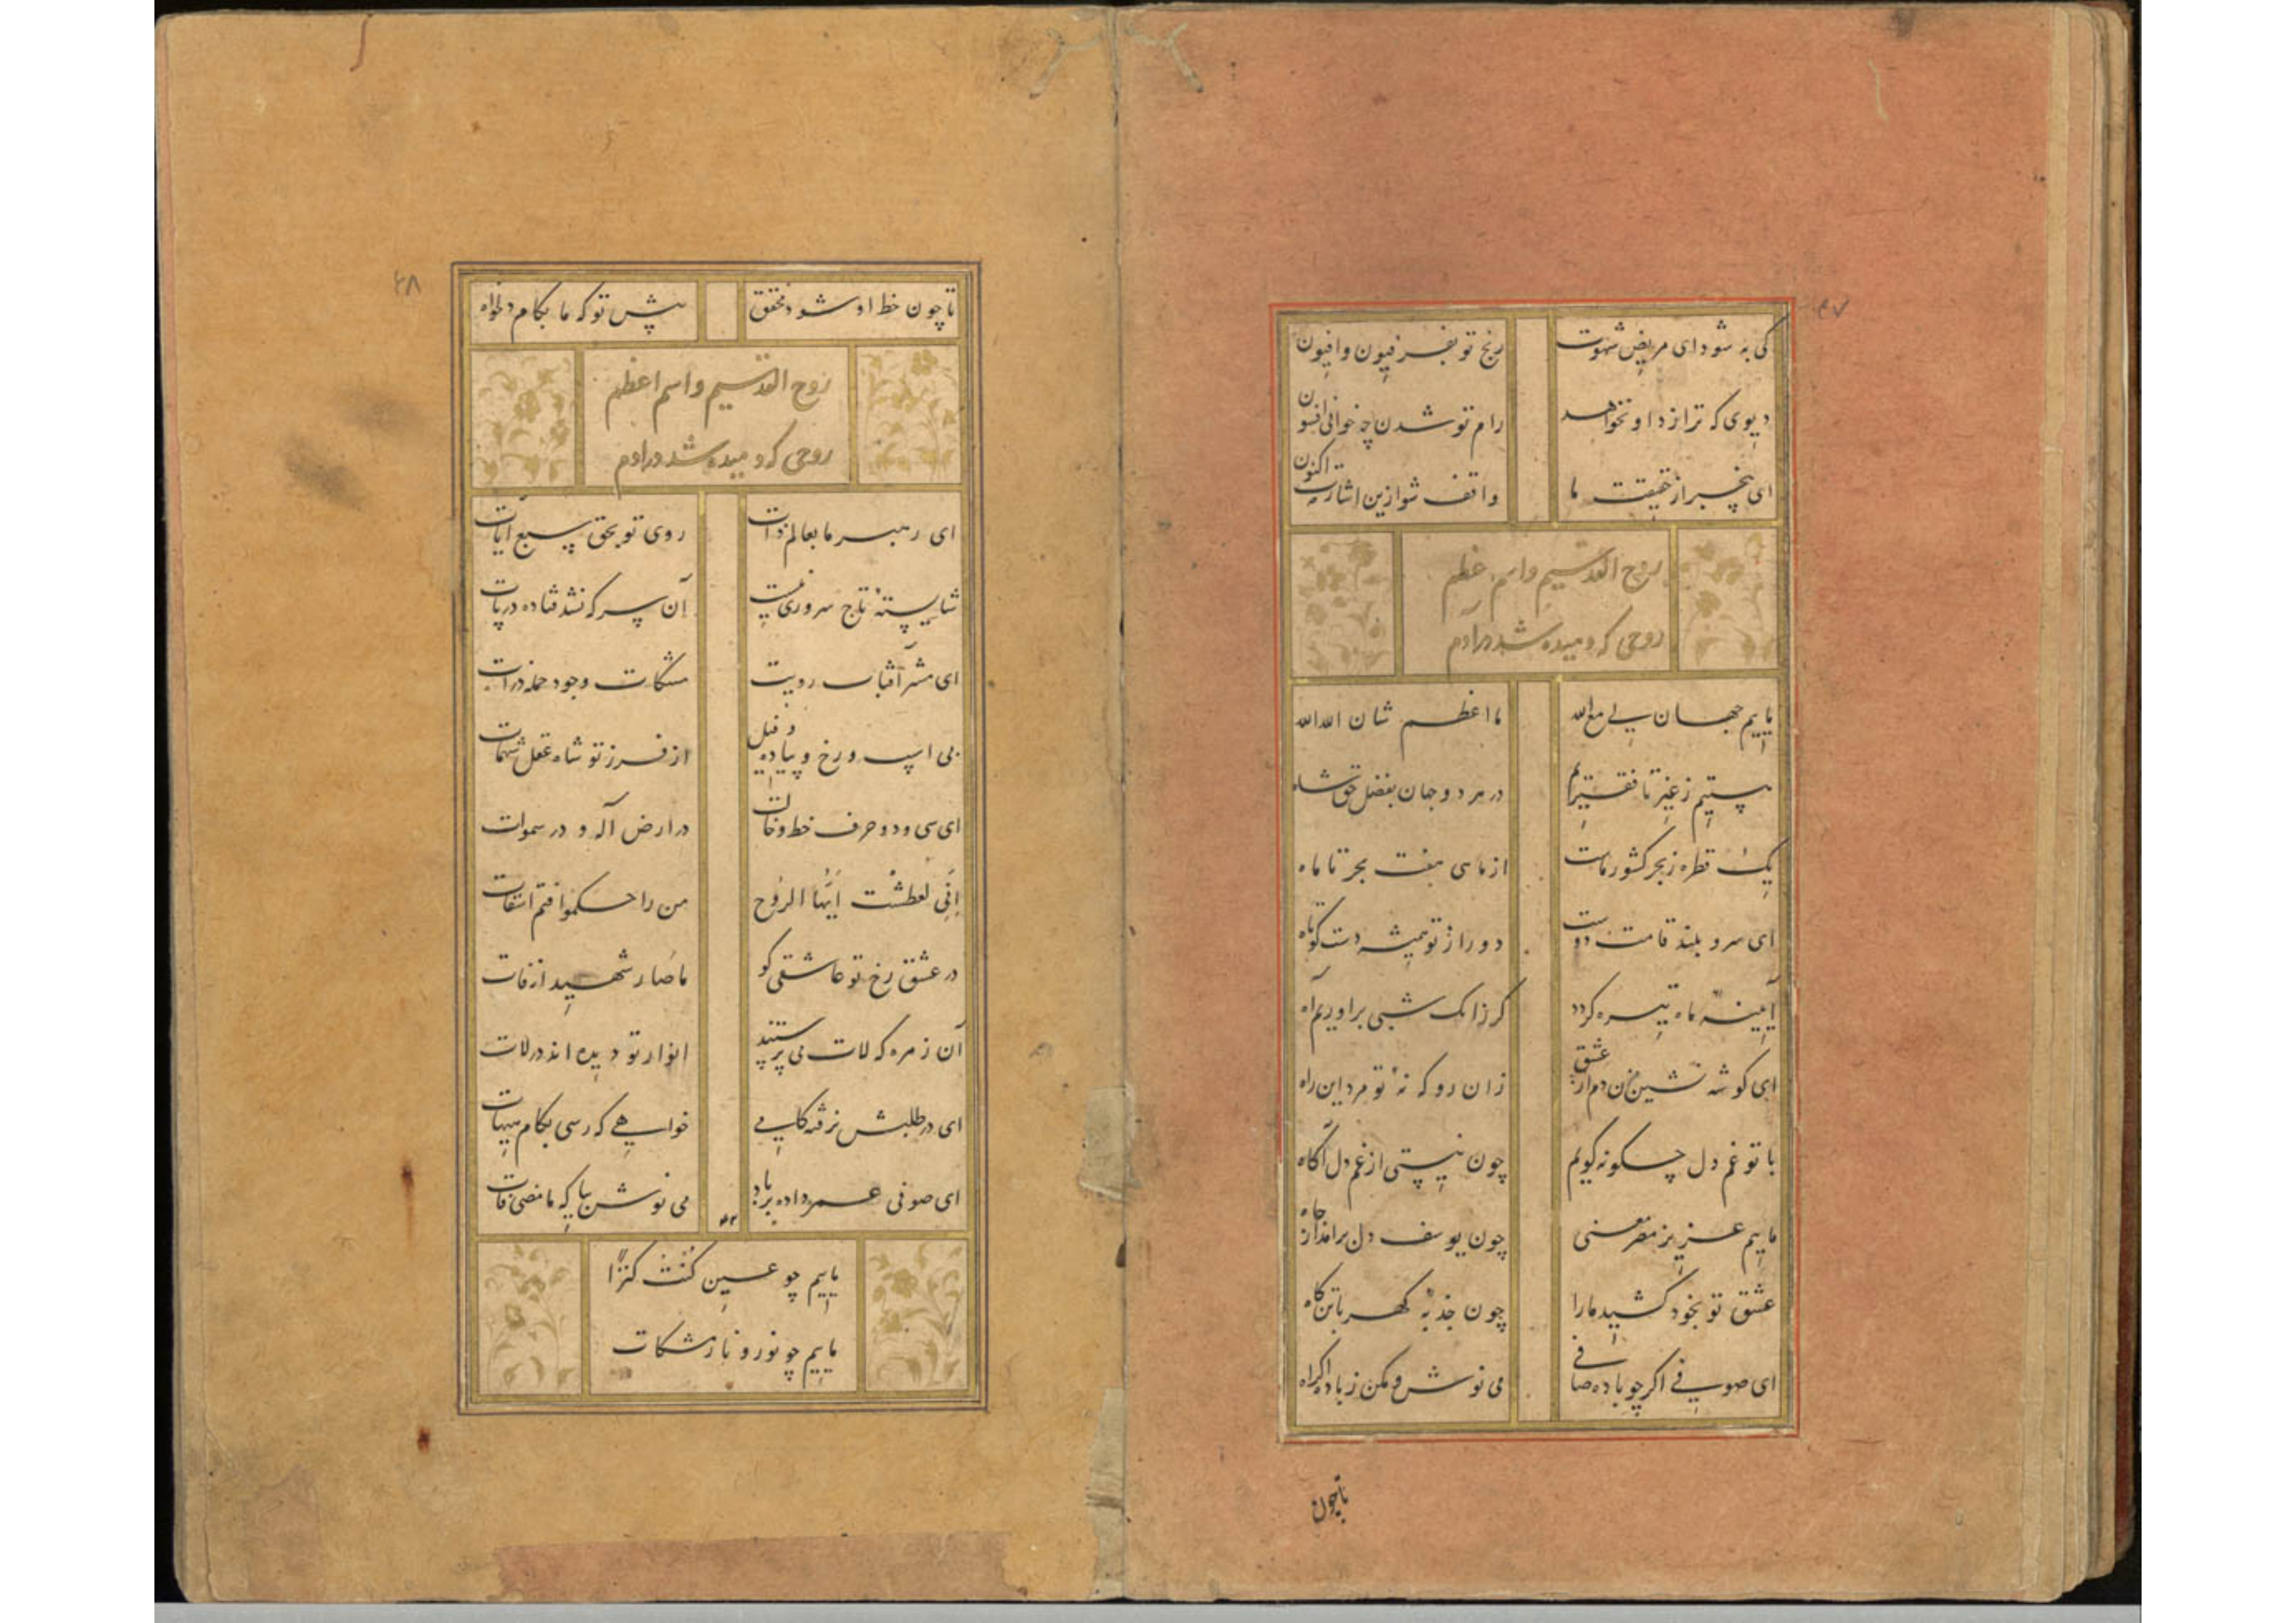 ۴۷
کی به شود ای مریض شهوت رنج تو بفرفیون وافیون
دیوی که ترا زد او نخواهد رام تو شدن چه خوانی افسون
ای بیخبر از حقیقت ما واقف شو ازین اشارت اکنون
روح القدسیم واسم اعظم
روحی که دمیده شد در آدم
ماییم جهان لی مع الله ما اعظم شان الله الله
هستیم ز غیر تا فقیریم در هر دو جهان بفضل حق شاه
یک قطره ز بحر کشور ماست از ماهی هفت بحر تا ماه
ای سرو بلند قامت دوست دور از تو همیشه دست کوتاه
آیینه ماه تیره گردد گر زانک شبی براوریم آه
ای گوشه نشین مزن دم از عشق زان رو که نه تو مرد این راه
با تو غم دل چگونه گویم چون نیستی از غم دل آگاه
ماییم عزیز مصر معنی چون یوسف دل برامد از چاه
عشق تو بخود کشید مارا چون جذبه کهربا تن کاه
ای صوفی اگر چو باده صافی می نوش و مکن ز باده اکراه
تا چون
۴۸
تا چون خط او شود محقق پیش تو که ما بکام دلخواه
روح القدسیم واسم اعظم
روحی که دمیده شد در ادم
ای رهبر ما بعالم ذات روی تو بحق سبع آیات
شایسته تاج سروری نیست آن سر که نشد فتاده در پات
ای مشرآفتاب رویت مشکات وجود جمله ذرات
بی اسپ و رخ و پیاده و فیل از فرز تو شاه عقل شهمات
ای سی و دو حرف خط و خالت در ارض آله و در سموات
انی لعطشت ایها الروح من راحکموا قم اسقات
در عشق رخ تو عاشقی کو ماصار شهید از فات
آن زمره که لات می پرستند انوار تو دیده اند در لات
ای در طلبش نرفته کامی خواهی که رسی بکام هیهات
ای صوفی عمر داده بر باد می نوش بیا که مامضی فات
ماییم چو عین کنت کنزا
ماییم چو نور و نار مشکات